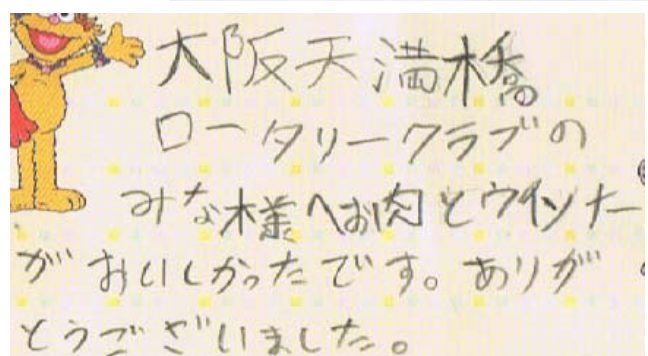 大阪天満橋
ロータリークラブの
みな様へお肉とウインナー
がおいしかったです。ありが
とうございました。